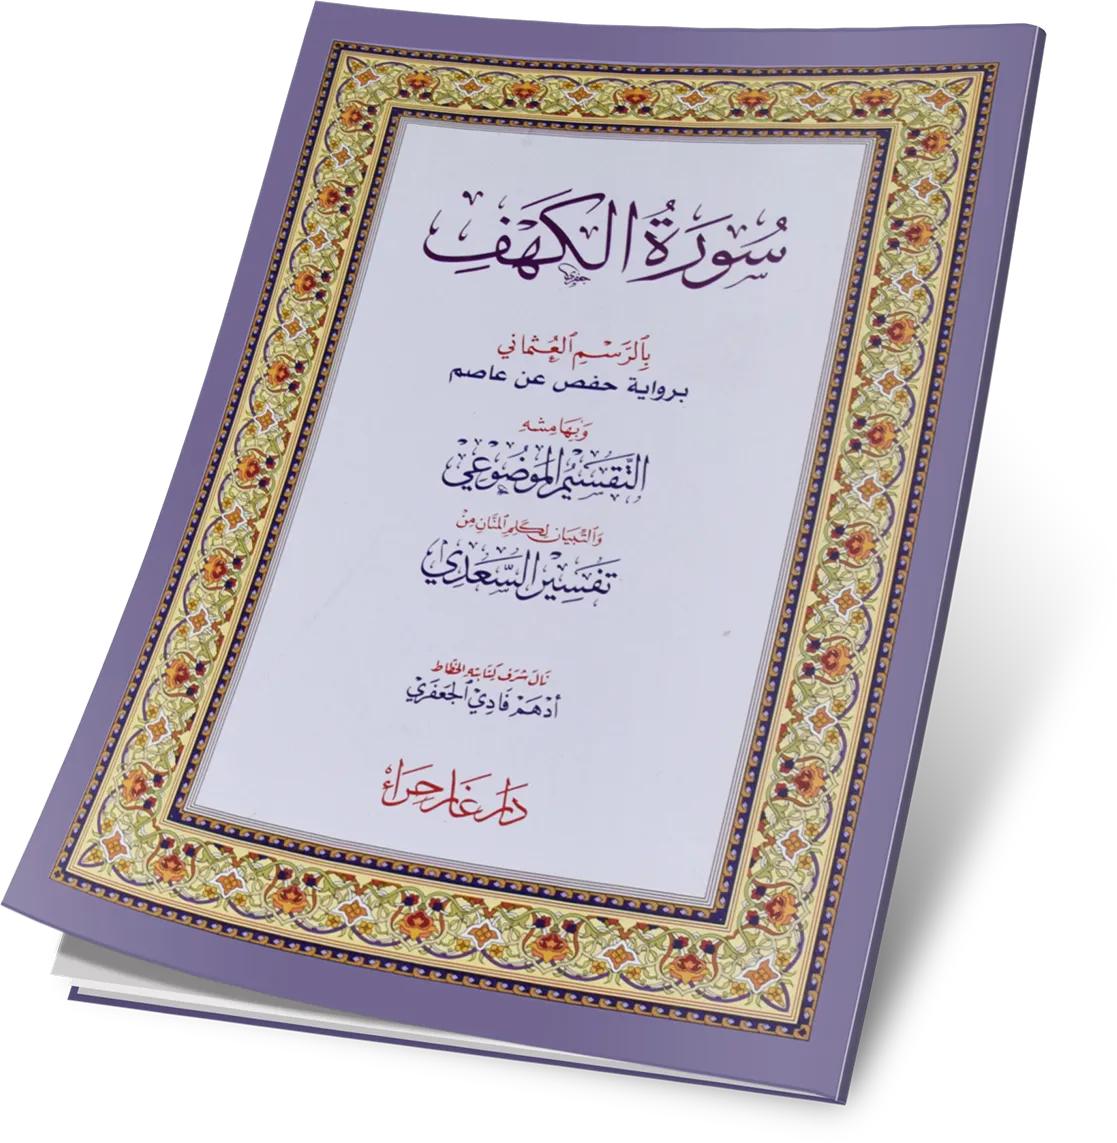 سُورَةُ الكَهْفِ
جعفري
بِالرَّسْمِ العُثْمَانِي
برواية حفص عن عاصم
وَبِهَامِشِهِ
التَّقْسِيمُ المَوْضُوعِي
وَالتِّبْيَان لِكَلِمِ المَنَّانِ مِنْ
تَفْسِيْرِ السَّعَدِي
نَالَ شَرَفَ كِتَابَتِهِ الخَطَّاط
أَدْهَمْ فَادِيْ الجَعْفَرِيْ
دَار غَار حِرَاء